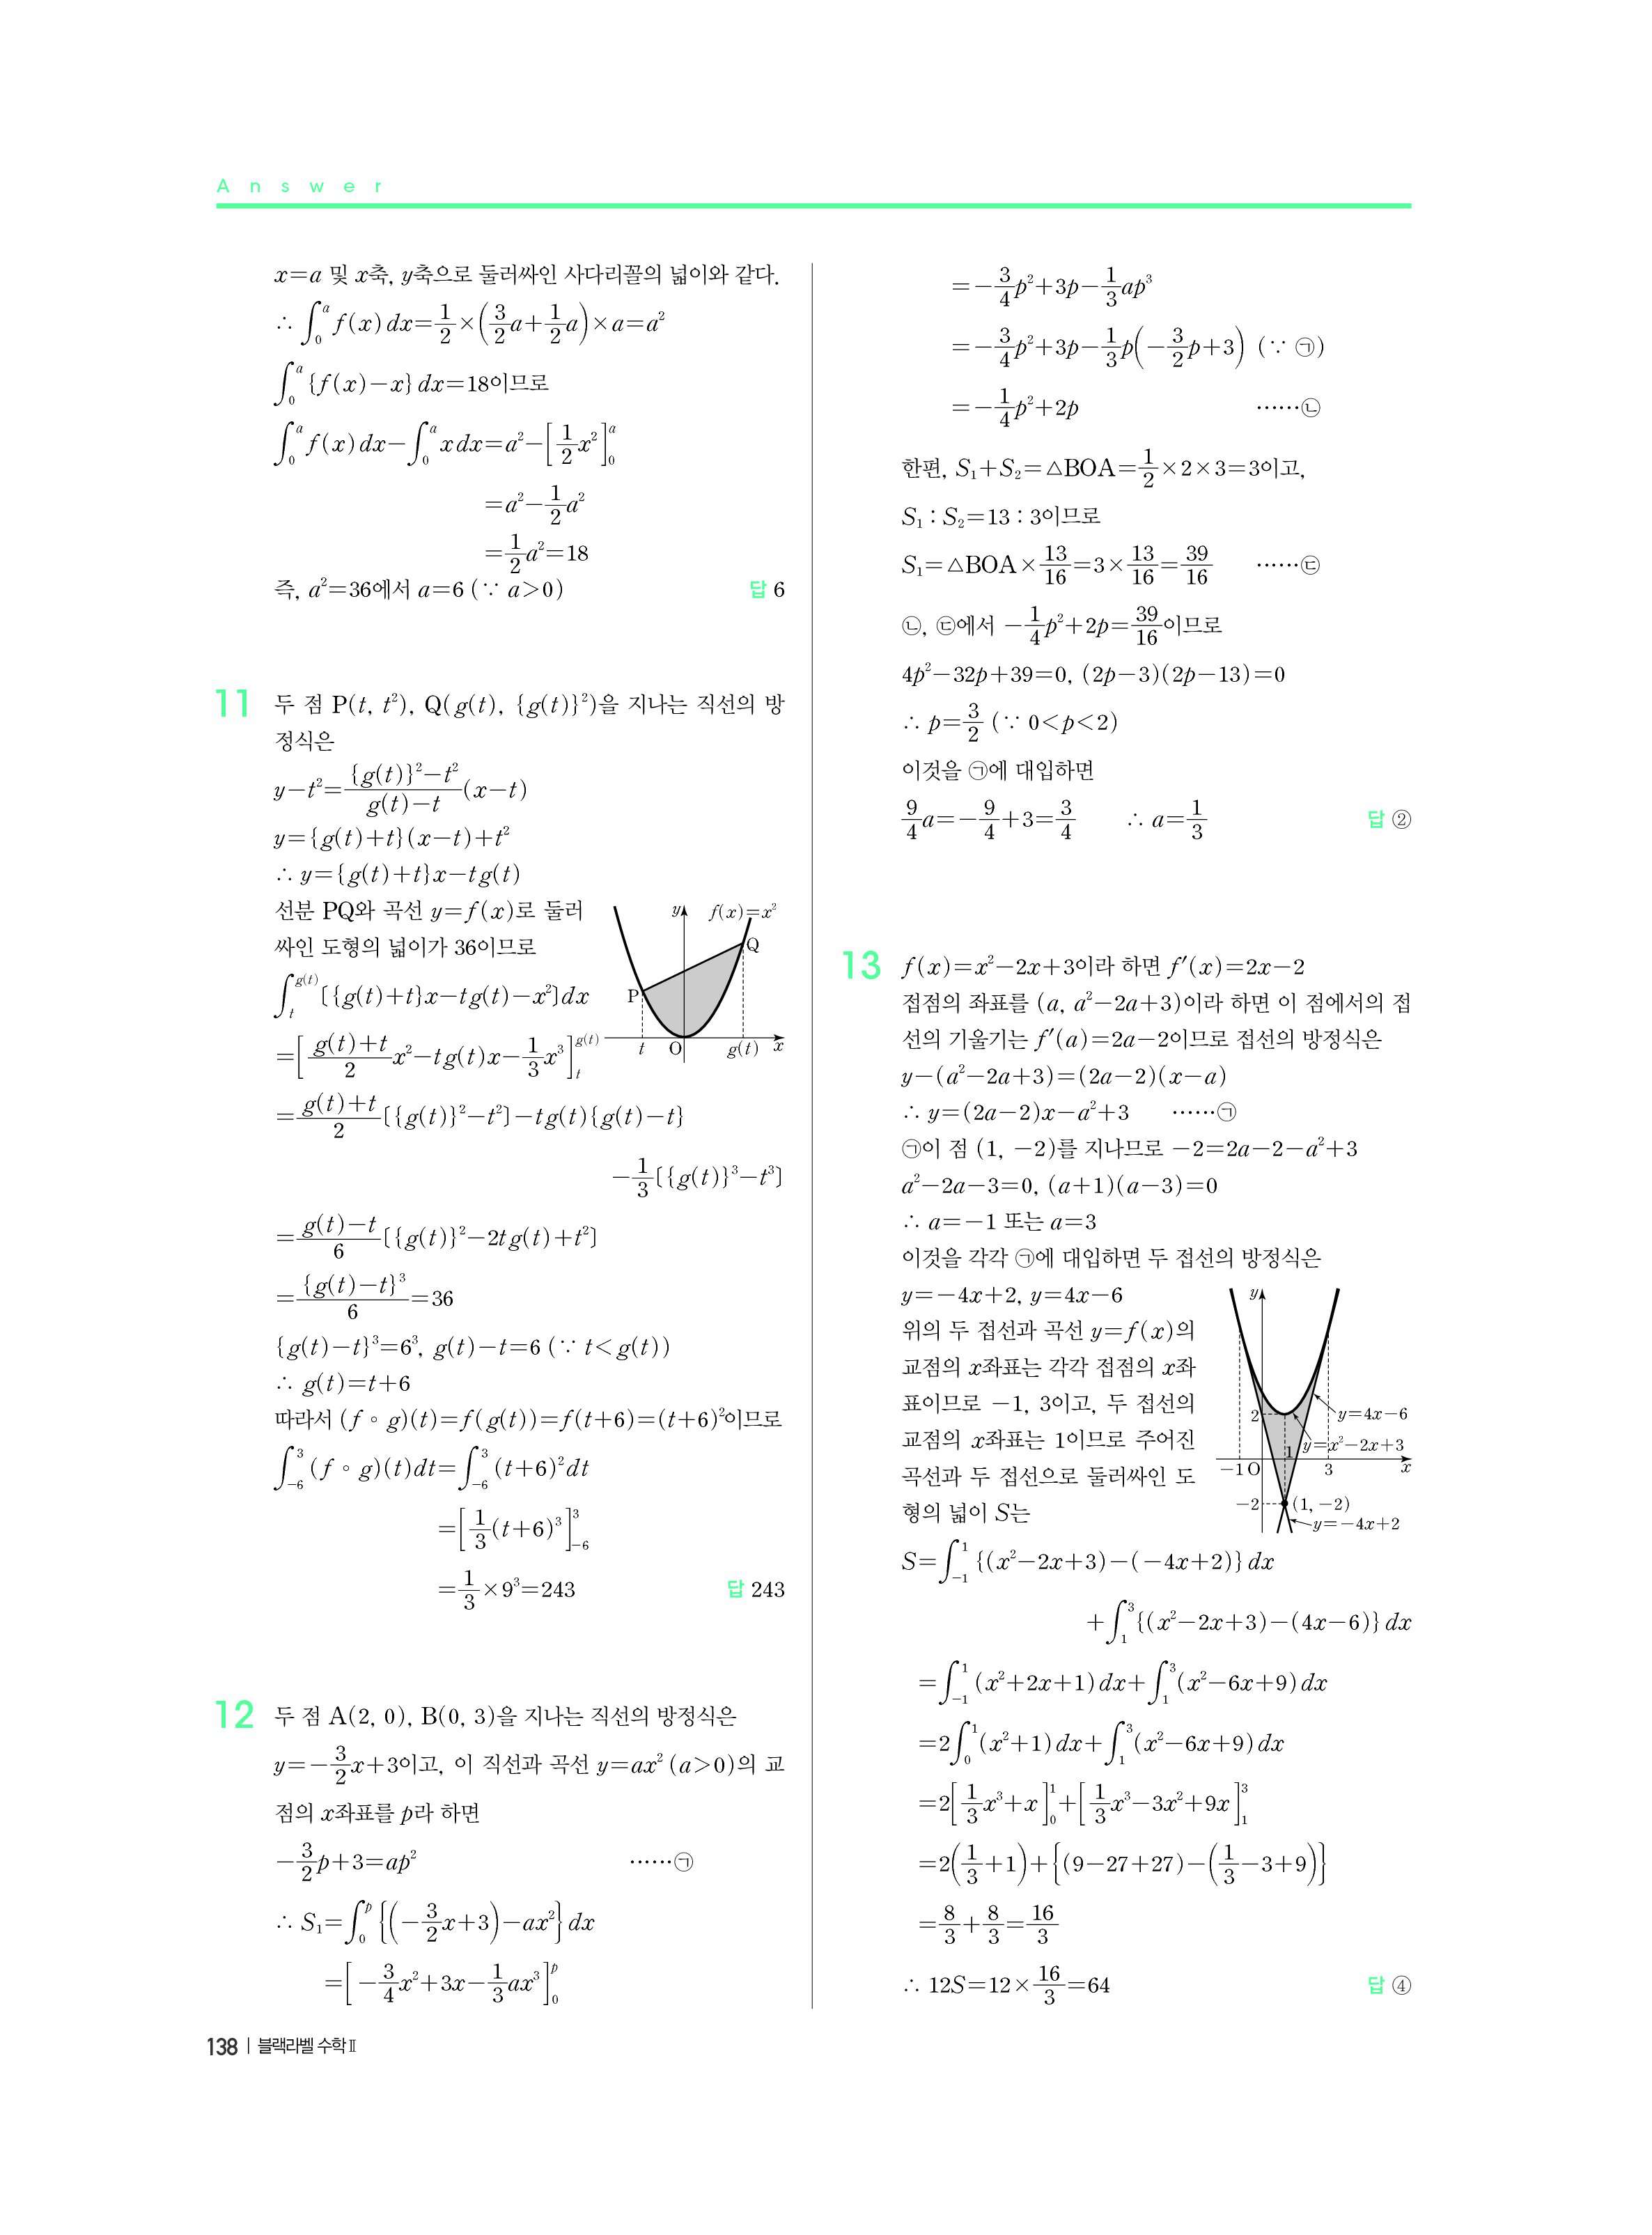 Answer
x=a 및 x축, y축으로 둘러싸인 사다리꼴의 넓이와 같다.
∴ ∫₀ᵃ f(x) dx=1/2×(3/2a+1/2a)×a=a²
∫₀ᵃ {f(x)-x} dx=18이므로
∫₀ᵃ f(x) dx-∫₀ᵃ x dx=a²-[1/2x²]₀ᵃ
=a²-1/2a²
=1/2a²=18
즉, a²=36에서 a=6 (∵ a>0) 답 6
11 두 점 P(t, t²), Q(g(t), {g(t)}²)을 지나는 직선의 방
정식은
y-t²=({g(t)}²-t²)/(g(t)-t)(x-t)
y={g(t)+t}(x-t)+t²
∴ y={g(t)+t}x-tg(t)
선분 PQ와 곡선 y=f(x)로 둘러
싸인 도형의 넓이가 36이므로
y f(x)=x² Q P t O g(t) x
∫_t^{g(t)} [{g(t)+t}x-tg(t)-x²]dx
=[(g(t)+t)/2 x²-tg(t)x-1/3x³]_t^{g(t)}
=(g(t)+t)/2[{g(t)}²-t²]-tg(t){g(t)-t}
-1/3[{g(t)}³-t³]
=(g(t)-t)/6[{g(t)}²-2tg(t)+t²]
={g(t)-t}³/6=36
{g(t)-t}³=6³, g(t)-t=6 (∵ t<g(t))
∴ g(t)=t+6
따라서 (f∘g)(t)=f(g(t))=f(t+6)=(t+6)²이므로
∫_{-6}^{3} (f∘g)(t)dt=∫_{-6}^{3} (t+6)²dt
=[1/3(t+6)³]_{-6}^{3}
=1/3×9³=243 답 243
12 두 점 A(2, 0), B(0, 3)을 지나는 직선의 방정식은
y=-3/2x+3이고, 이 직선과 곡선 y=ax² (a>0)의 교
점의 x좌표를 p라 하면
-3/2p+3=ap² ……㉠
∴ S₁=∫₀ᵖ {(-3/2x+3)-ax²} dx
=[-3/4x²+3x-1/3ax³]₀ᵖ
=-3/4p²+3p-1/3ap³
=-3/4p²+3p-1/3p(-3/2p+3) (∵ ㉠)
=-1/4p²+2p ……㉡
한편, S₁+S₂=△BOA=1/2×2×3=3이고,
S₁ : S₂=13 : 3이므로
S₁=△BOA×13/16=3×13/16=39/16 ……㉢
㉡, ㉢에서 -1/4p²+2p=39/16이므로
4p²-32p+39=0, (2p-3)(2p-13)=0
∴ p=3/2 (∵ 0<p<2)
이것을 ㉠에 대입하면
9/4a=-9/4+3=3/4 ∴ a=1/3 답 ②
13 f(x)=x²-2x+3이라 하면 f′(x)=2x-2
접점의 좌표를 (a, a²-2a+3)이라 하면 이 점에서의 접
선의 기울기는 f′(a)=2a-2이므로 접선의 방정식은
y-(a²-2a+3)=(2a-2)(x-a)
∴ y=(2a-2)x-a²+3 ……㉠
㉠이 점 (1, -2)를 지나므로 -2=2a-2-a²+3
a²-2a-3=0, (a+1)(a-3)=0
∴ a=-1 또는 a=3
이것을 각각 ㉠에 대입하면 두 접선의 방정식은
y=-4x+2, y=4x-6
위의 두 접선과 곡선 y=f(x)의
교점의 x좌표는 각각 접점의 x좌
표이므로 -1, 3이고, 두 접선의
교점의 x좌표는 1이므로 주어진
곡선과 두 접선으로 둘러싸인 도
형의 넓이 S는
y
2 y=4x-6
1 y=x²-2x+3
-1 O 3 x
-2 (1, -2)
y=-4x+2
S=∫_{-1}^{1} {(x²-2x+3)-(-4x+2)} dx
+∫₁³ {(x²-2x+3)-(4x-6)} dx
=∫_{-1}^{1} (x²+2x+1) dx+∫₁³ (x²-6x+9) dx
=2∫₀¹ (x²+1) dx+∫₁³ (x²-6x+9) dx
=2[1/3x³+x]₀¹+[1/3x³-3x²+9x]₁³
=2(1/3+1)+{(9-27+27)-(1/3-3+9)}
=8/3+8/3=16/3
∴ 12S=12×16/3=64 답 ④
138 | 블랙라벨 수학Ⅱ